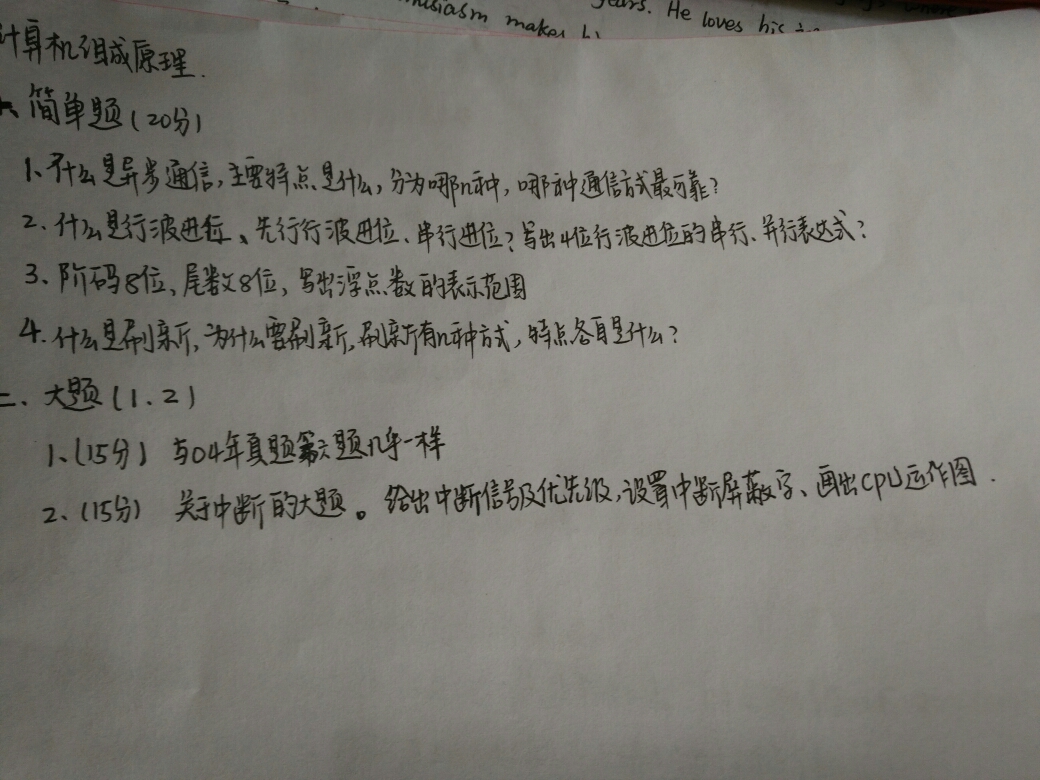 years. He loves his
usiasm makes hi
计算机组成原理.
一、简单题(20分)
1、什么是异步通信,主要特点是什么,分为哪几种,哪种通信方式最可靠?
2、什么是行波进位、先行行波进位、串行进位?写出4位行波进位的串行、并行表达式?
3、阶码8位,尾数8位,写出浮点数的表示范围
4.什么是刷新,为什么要刷新,刷新有几种方式,特点各自是什么?
二、大题(1.2)
1、(15分) 与04年真题第六题几乎一样
2、(15分) 关于中断的大题。给出中断信号及优先级,设置中断屏蔽字、画出CPU运作图.